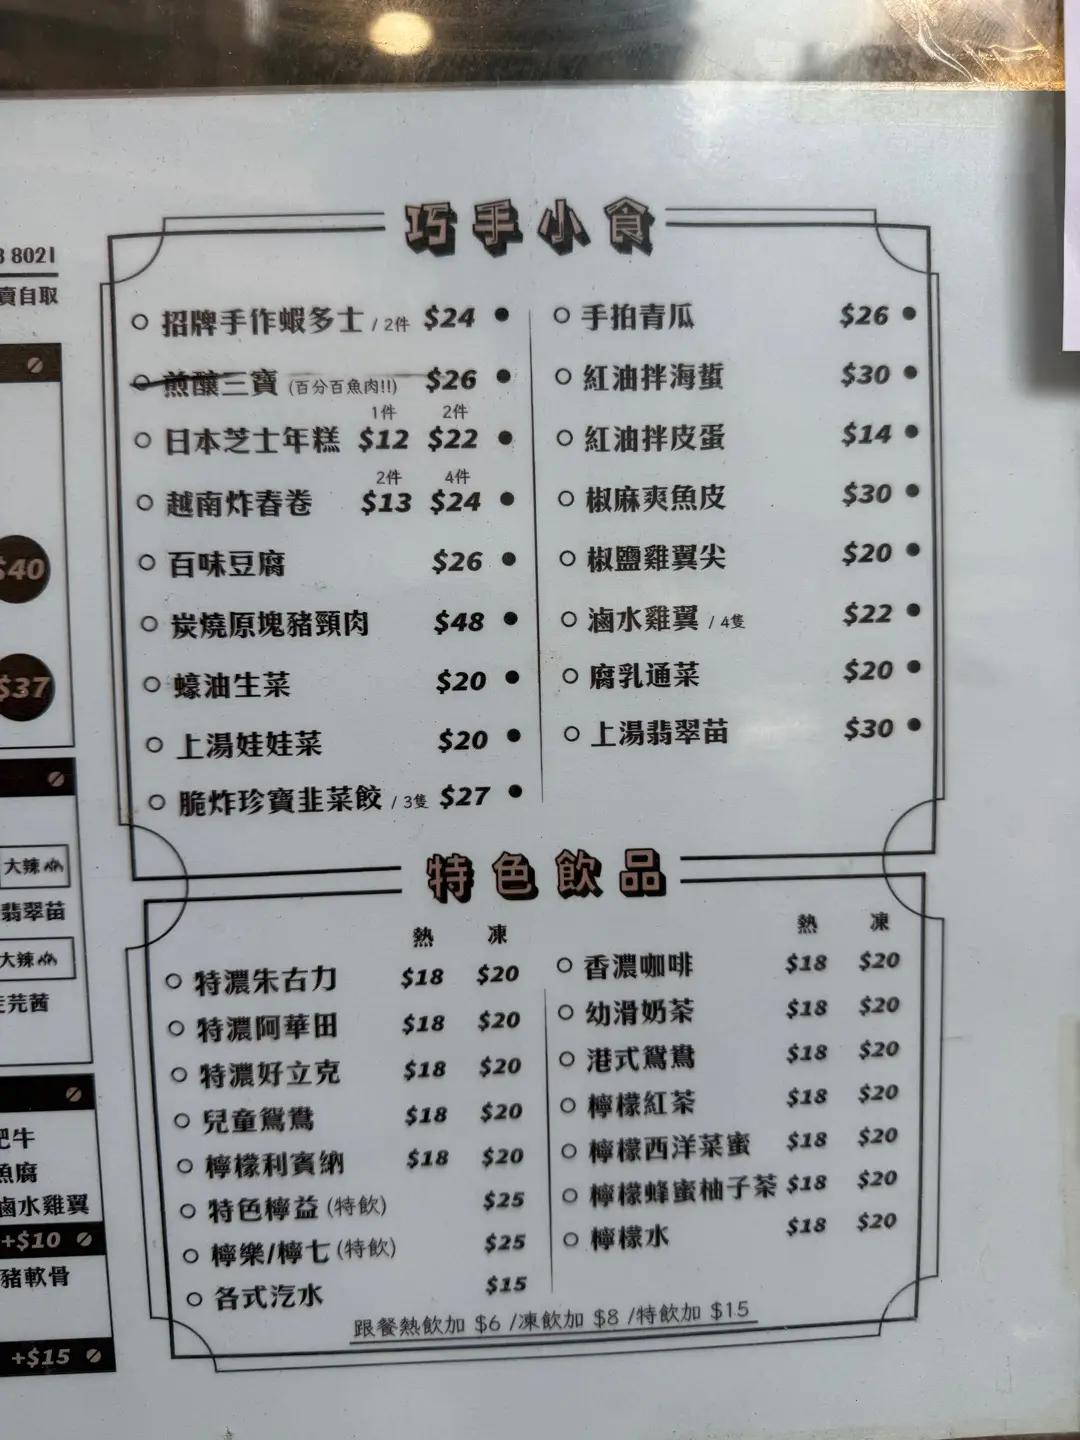 3 8021
賣自取
$40
$37
大辣
翡翠苗
大辣
芫茜
肥牛
魚腐
滷水雞翼
+$10
豬軟骨
+$15
巧手小食
招牌手作蝦多士 / 2件 $24
煎釀三寶 (百分百魚肉!!) $26
1件 2件
日本芝士年糕 $12 $22
2件 4件
越南炸春卷 $13 $24
百味豆腐 $26
炭燒原塊豬頸肉 $48
蠔油生菜 $20
上湯娃娃菜 $20
脆炸珍寶韭菜餃 / 3隻 $27
手拍青瓜 $26
紅油拌海蜇 $30
紅油拌皮蛋 $14
椒麻爽魚皮 $30
椒鹽雞翼尖 $20
滷水雞翼 / 4隻 $22
腐乳通菜 $20
上湯翡翠苗 $30
特色飲品
熱 凍
特濃朱古力 $18 $20
特濃阿華田 $18 $20
特濃好立克 $18 $20
兒童鴛鴦 $18 $20
檸檬利賓納 $18 $20
特色檸益 (特飲) $25
檸樂/檸七 (特飲) $25
各式汽水 $15
熱 凍
香濃咖啡 $18 $20
幼滑奶茶 $18 $20
港式鴛鴦 $18 $20
檸檬紅茶 $18 $20
檸檬西洋菜蜜 $18 $20
檸檬蜂蜜柚子茶 $18 $20
檸檬水 $18 $20
跟餐熱飲加 $6 /凍飲加 $8 /特飲加 $15